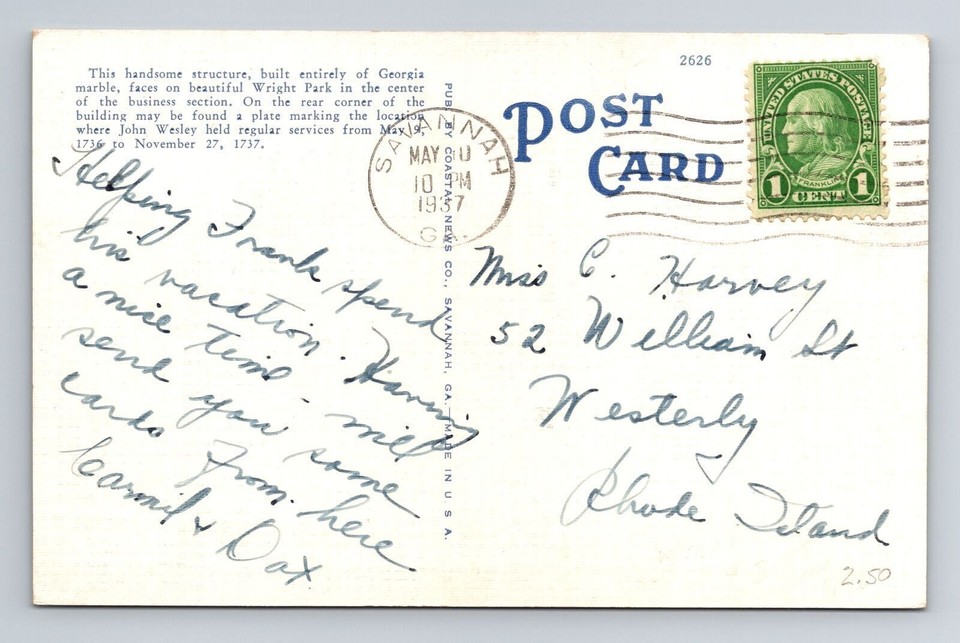 This handsome structure, built entirely of Georgia
marble, faces on beautiful Wright Park in the center
of the business section. On the rear corner of the
building may be found a plate marking the location
where John Wesley held regular services from May 9,
1736 to November 27, 1737.
Helping Frank spend
his vacation. Having
a nice time. will
send you some
cards from here
Carmil & Dax
PUB. BY COASTAL NEWS CO., SAVANNAH, GA.—MADE IN U. S. A.
SAVANNAH
MAY
10 PM
1937
GA.
2626
POST
CARD
UNITED STATES POSTAGE
FRANKLIN
1 CENT 1
Miss C. Harvey
52 William St
Westerly
Rhode Island
2.50